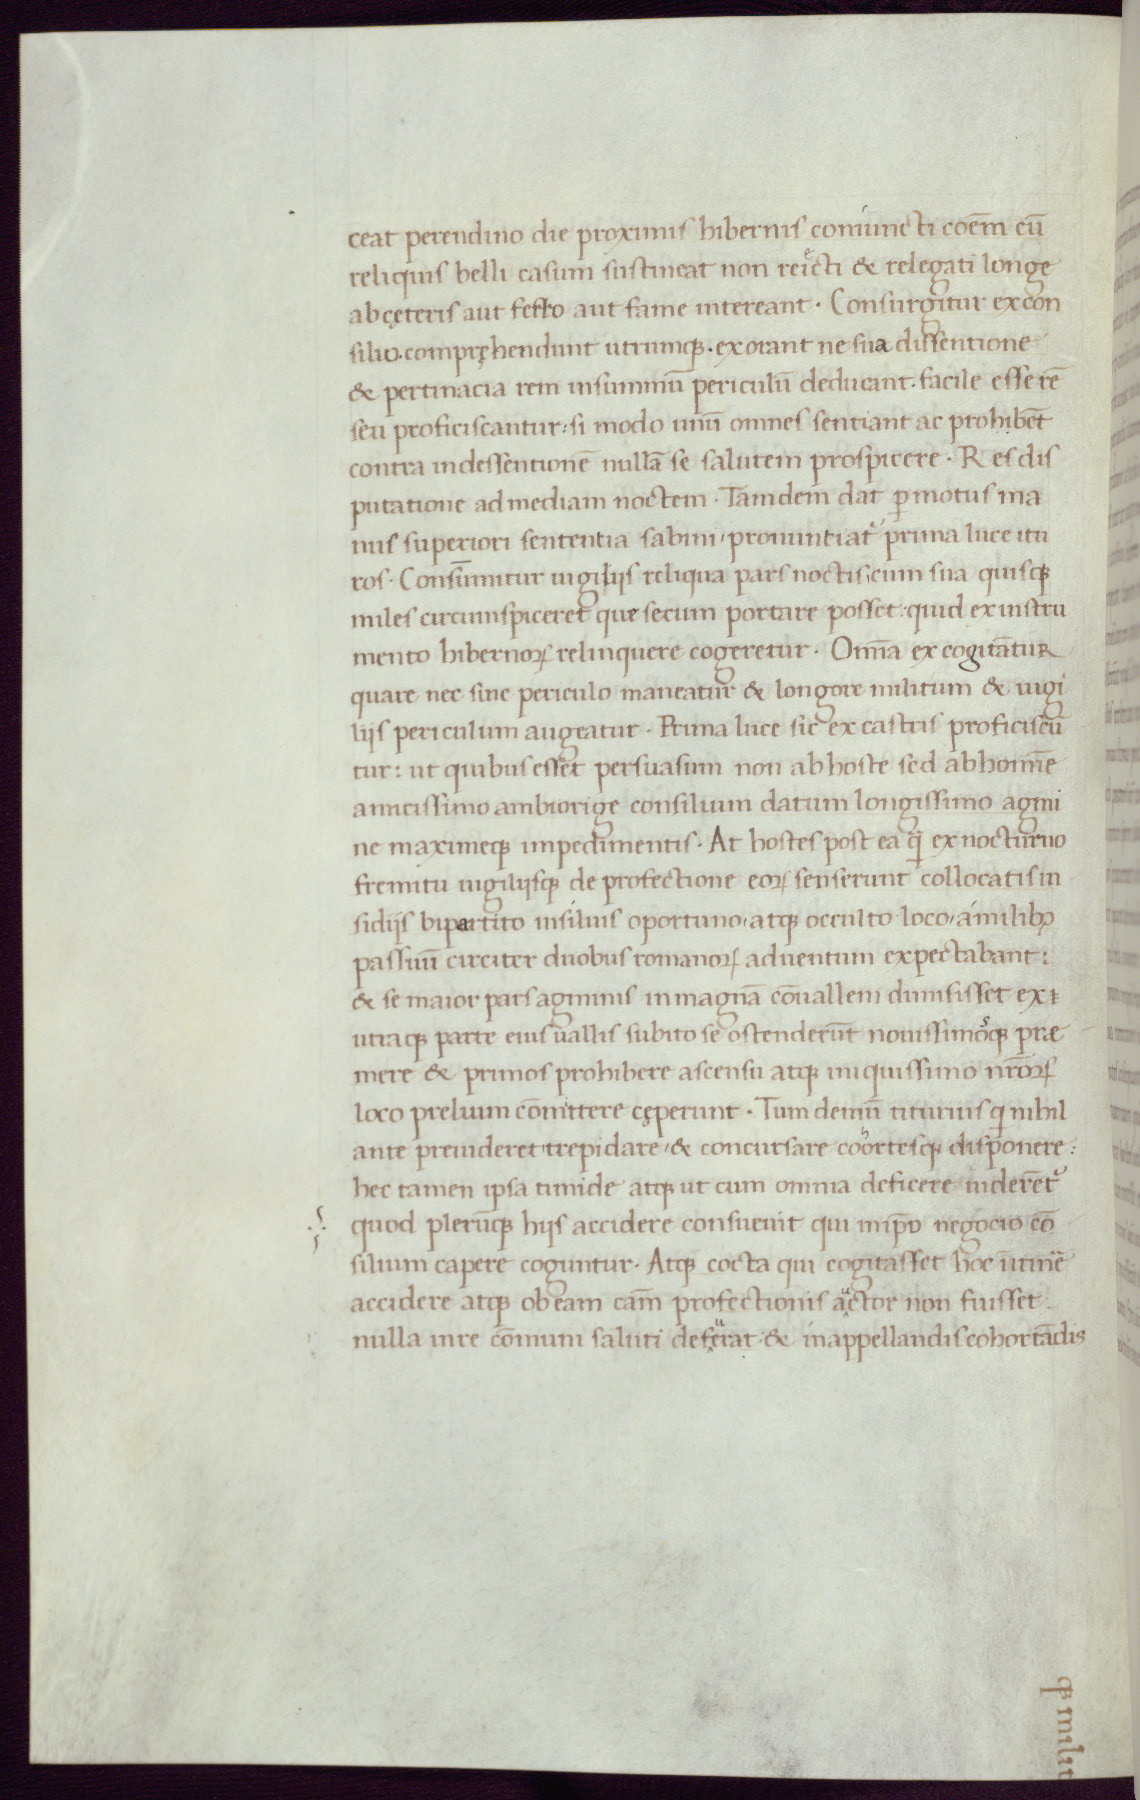 ceat perendino die proximis hibernis coniuncti coēm cū
reliquis belli casum sustineat non reiecti & relegati longe
ab cęteris aut ferro aut fame intereant · Consurgitur ex con
silio · compręhendunt utrumq; · exorant ne sua dissentione
& pertinacia rem insummū periculū deducant · facile esse rē
seu proficiscantur : si modo unū omnes sentiant ac prohibēt
contra indessentionē nullā se salutem prospicere · Res dis
putatione ad mediam noctem · Tamdem dat ꝑmotus ma
nus superiori sententia sabini / pronuntiatᷣ prima luce itu
ros · Consūmitur uigilijs reliqua pars noctis cum sua quisq;
miles circumspiceret que secum portare posset · quid ex instru
mento hibernoꝝ relinquere cogeretur · Omīa excogitātur
quare nec sine periculo maneatur & longore militum & uigi
lijs periculum augeatur · Prima luce sic ex castris proficiscū
tur : ut quibus esset persuasum non ab hoste sed ab homīe
amicissimo ambiorige consilium datum longissimo agmi
ne maximeq; impedimentis · At hostes post ea q̄ ex nocturno
fremitu uigilijsq; de profectione eoꝝ senserunt collocatis in
sidijs bipartito insiluis oportuno / atq; occulto loco / a milibꝫ
passuū circiter duobus romanoꝝ aduentum expectabant :
& se maior pars agminis in magnā cōuallem dimisisset ex
utraq; parte eius uallis subito se ostenderūt nouissimosq; præ
mere & primos prohibere ascensu atq; iniquissimo nr̄oꝝ
loco prelium cōmittere cęperunt · Tum demū titurius q̄ nihil
ante preuideret trepidare / & concursare cohortesq; disponere :
hec tamen ipsa timide atq; ut cum omnia deficere uiderētᷣ
quod plerūq; hijs accidere consueuit qui in ip̄o negocio cō
silium capere coguntur · Atq; cocta qui cogitasset hoc ī itinē
accidere atq; ob eam cām profectionis auctor non fuisset
nulla in re cōmuni saluti deerat · & in appellandis cohortādis
q; milit